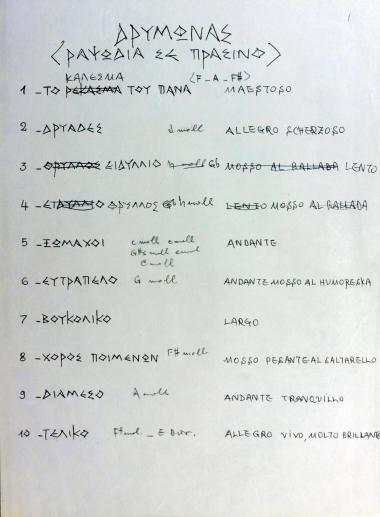 ΔΡΥΜΩΝΑΣ
(ΡΑΨΩΔΙΑ ΣΕ ΠΡΑΣΙΝΟ)
ΚΑΛΕΣΜΑ (F-A-F#)
1 - ΤΟ ΡΕΚΑΣΜΑ ΤΟΥ ΠΑΝΑ MAESTOSO
2 - ΔΡΥΑΔΕΣ d moll ALLEGRO SCHERZOSO
3 - ΘΡΥΛΛΟΣ ΕΙΔΥΛΛΙΟ h moll Gb MOSSO AL BALLADA LENTO
4 - ΕΙΔΥΛΛΙΟ ΘΡΥΛΛΟΣ Gb h moll LENTO MOSSO AL BALLADA
5 - ΞΩΜΑΧΟΙ c moll e moll ANDANTE
G# moll
C moll
6 - ΕΥΤΡΑΠΕΛΟ G moll ANDANTE MOSSO AL HUMORESKA
7 - ΒΟΥΚΟΛΙΚΟ LARGO
8 - ΧΟΡΟΣ ΠΟΙΜΕΝΩΝ F# moll MOSSO PESANTE AL SALTARELLO
9 - ΔΙΑΜΕΣΟ A moll ANDANTE TRANQUILLO
10 - ΤΕΛΙΚΟ F# mol - E Dur. ALLEGRO VIVO, MOLTO BRILLANTE